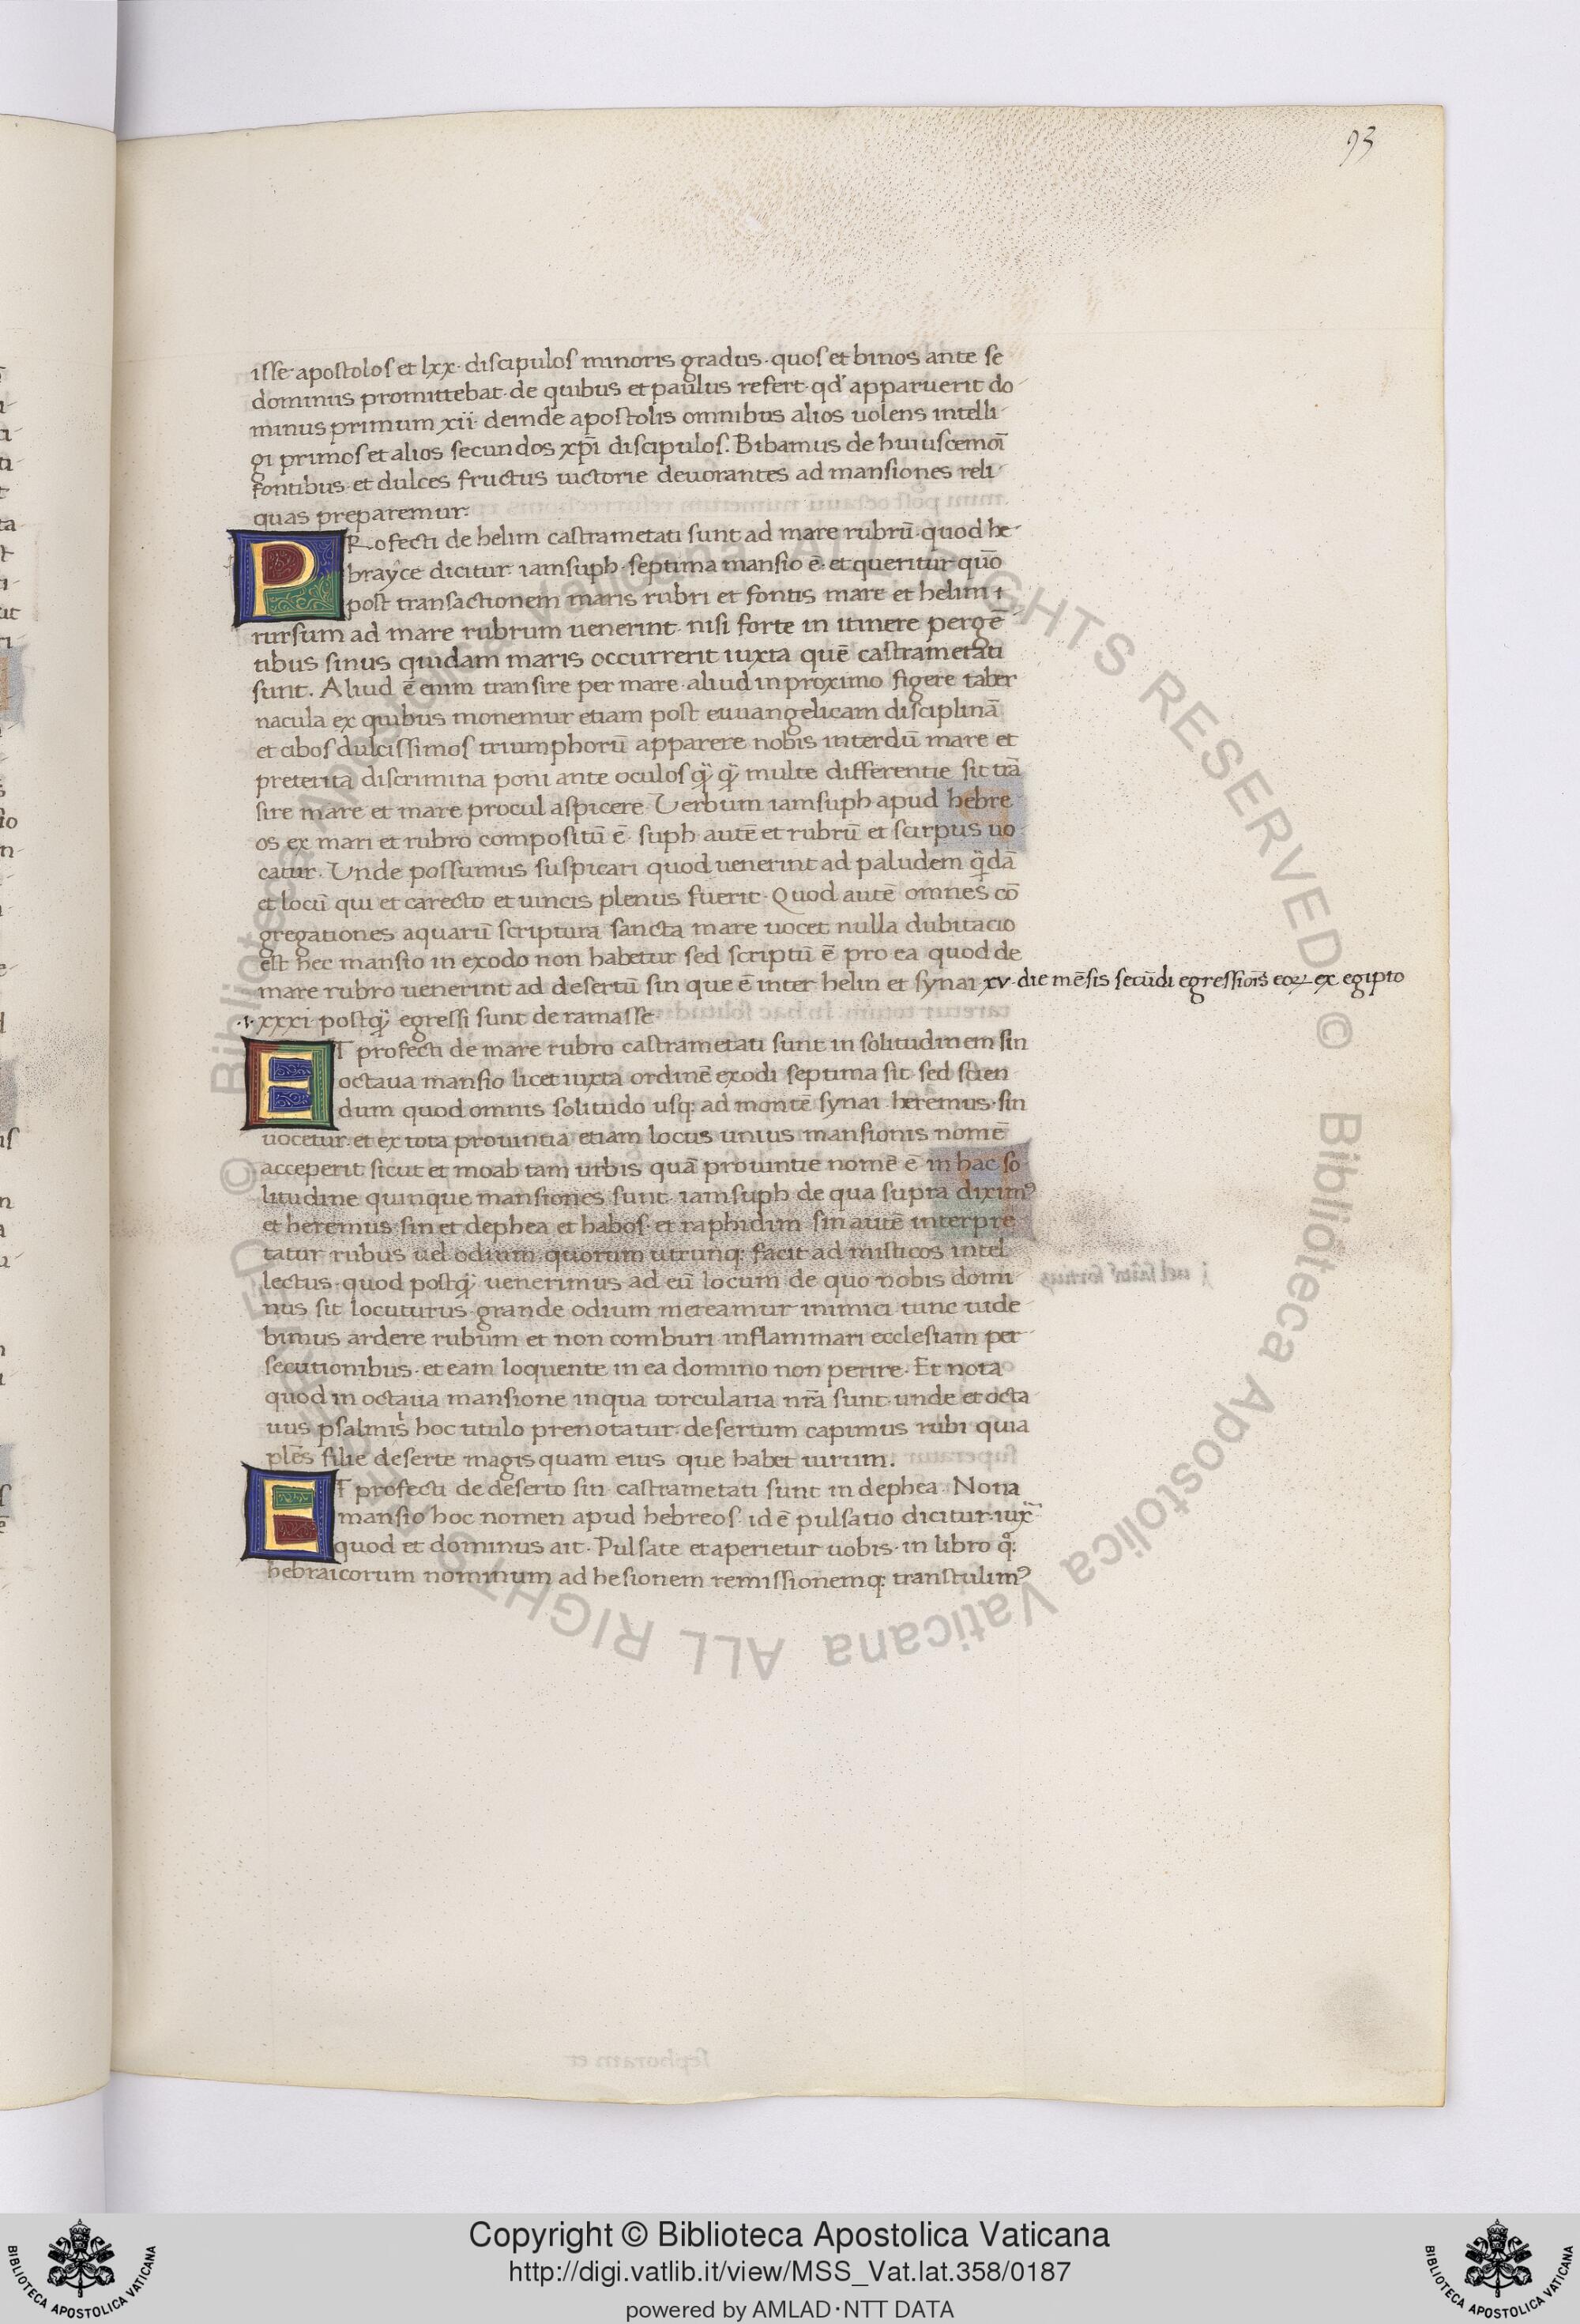 93
isse apostolos et lxx. discipulos minoris gradus. quos et binos ante se
dominus promittebat. de quibus et paulus refert. qd' apparuerit do-
minus primum xii. deinde apostolis omnibus alios uolens intelli-
gi primos et alios secundos xp̄i discipulos. Bibamus de huiuscemōi
fontibus et dulces fructus uictorie deuorantes ad mansiones reli-
quas preparemur.
PRofecti de helim castrametati sunt ad mare rubrū. quod he-
brayce dicitur iamsuph. septima mansio ē. et queritur quō
post transactionem maris rubri et fontis mare et helim ī
rursum ad mare rubrum uenerint. nisi forte in itinere pergē-
tibus sinus quidam maris occurrerit iuxta quē castrametati
sunt. Aliud ē enim transire per mare. aliud in proximo figere taber
nacula ex quibus monemur etiam post euuangelicam disciplinā
et cibos dulcissimos triumphorū apparere nobis interdū mare et
preterita discrimina poni ante oculos qͣ̄ qͣ̄ multe differentie sit trā
sire mare et mare procul aspicere. Verbum iamsuph apud hebre
os ex mari et rubro compositū ē. suph autē et rubrū et scirpus uo-
catur. Unde possumus suspicari quod uenerint ad paludem qͣ̄dā
et locū qui et carecto et uincis plenus fuerit. Quod autē omnes cō
gregationes aquarū scriptura sancta mare uocet nulla dubitacio
est hec mansio in exodo non habetur sed scriptū ē pro ea quod de
mare rubro uenerint ad desertū sin que ē inter helin et synai xv. die mēsis secūdi egressiōis eoꝝ ex egipto
.i. xxxi. postqͣ̄ egressi sunt de ramasse.
ET profecti de mare rubro castrametati sunt in solitudinem sin
octaua mansio licet iuxta ordinē exodi septima sit. sed scien
dum quod omnis solitudo usq: ad montē synai heremus. sin
uocetur. et ex tota prouintia etiam locus unius mansionis nomē
acceperit. sicut et moab tam urbis quā prouintie nomē ē in hac so
litudine quinque mansiones sunt. iamsuph de qua supra diximꝰ
et heremus. sin et dephea et halos. et raphidim sin autē interpre
tatur rubus uel odium. quorum utrunq: facit ad misticos intel
lectus. quod postqͣ̄ uenerimus ad eū locum de quo nobis domi
nus sit locuturus. grande odium mereamur inimici tunc uide
bimus ardere rubum et non comburi. inflammari ecclesiam per
secutionibus. et eam loquente in ea domino non perire. Et nota
quod in octaua mansione in qua torcularia nr̄a sunt. unde et octa
uus psalmis hoc titulo prenotatur. desertum capimus rubi quia
plēs filie deserte magis quam eius que habet uirum.
ET profecti de deserto sin castrametati sunt in dephea. Nona
mansio hoc nomen apud hebreos. id ē pulsatio dicitur. iux
quod et dominus ait. Pulsate et aperietur uobis. in libro q̊:
hebraicorum nominum ad hesionem remissionemq: transtulimꝰ
© Biblioteca Apostolica Vaticana ALL RIGHTS RESERVED © Biblioteca Apostolica Vaticana ALL RIGHTS RESERVED
Copyright © Biblioteca Apostolica Vaticana
http://digi.vatlib.it/view/MSS_Vat.lat.358/0187
powered by AMLAD·NTT DATA
BIBLIOTECA APOSTOLICA VATICANA
BIBLIOTECA APOSTOLICA VATICANA